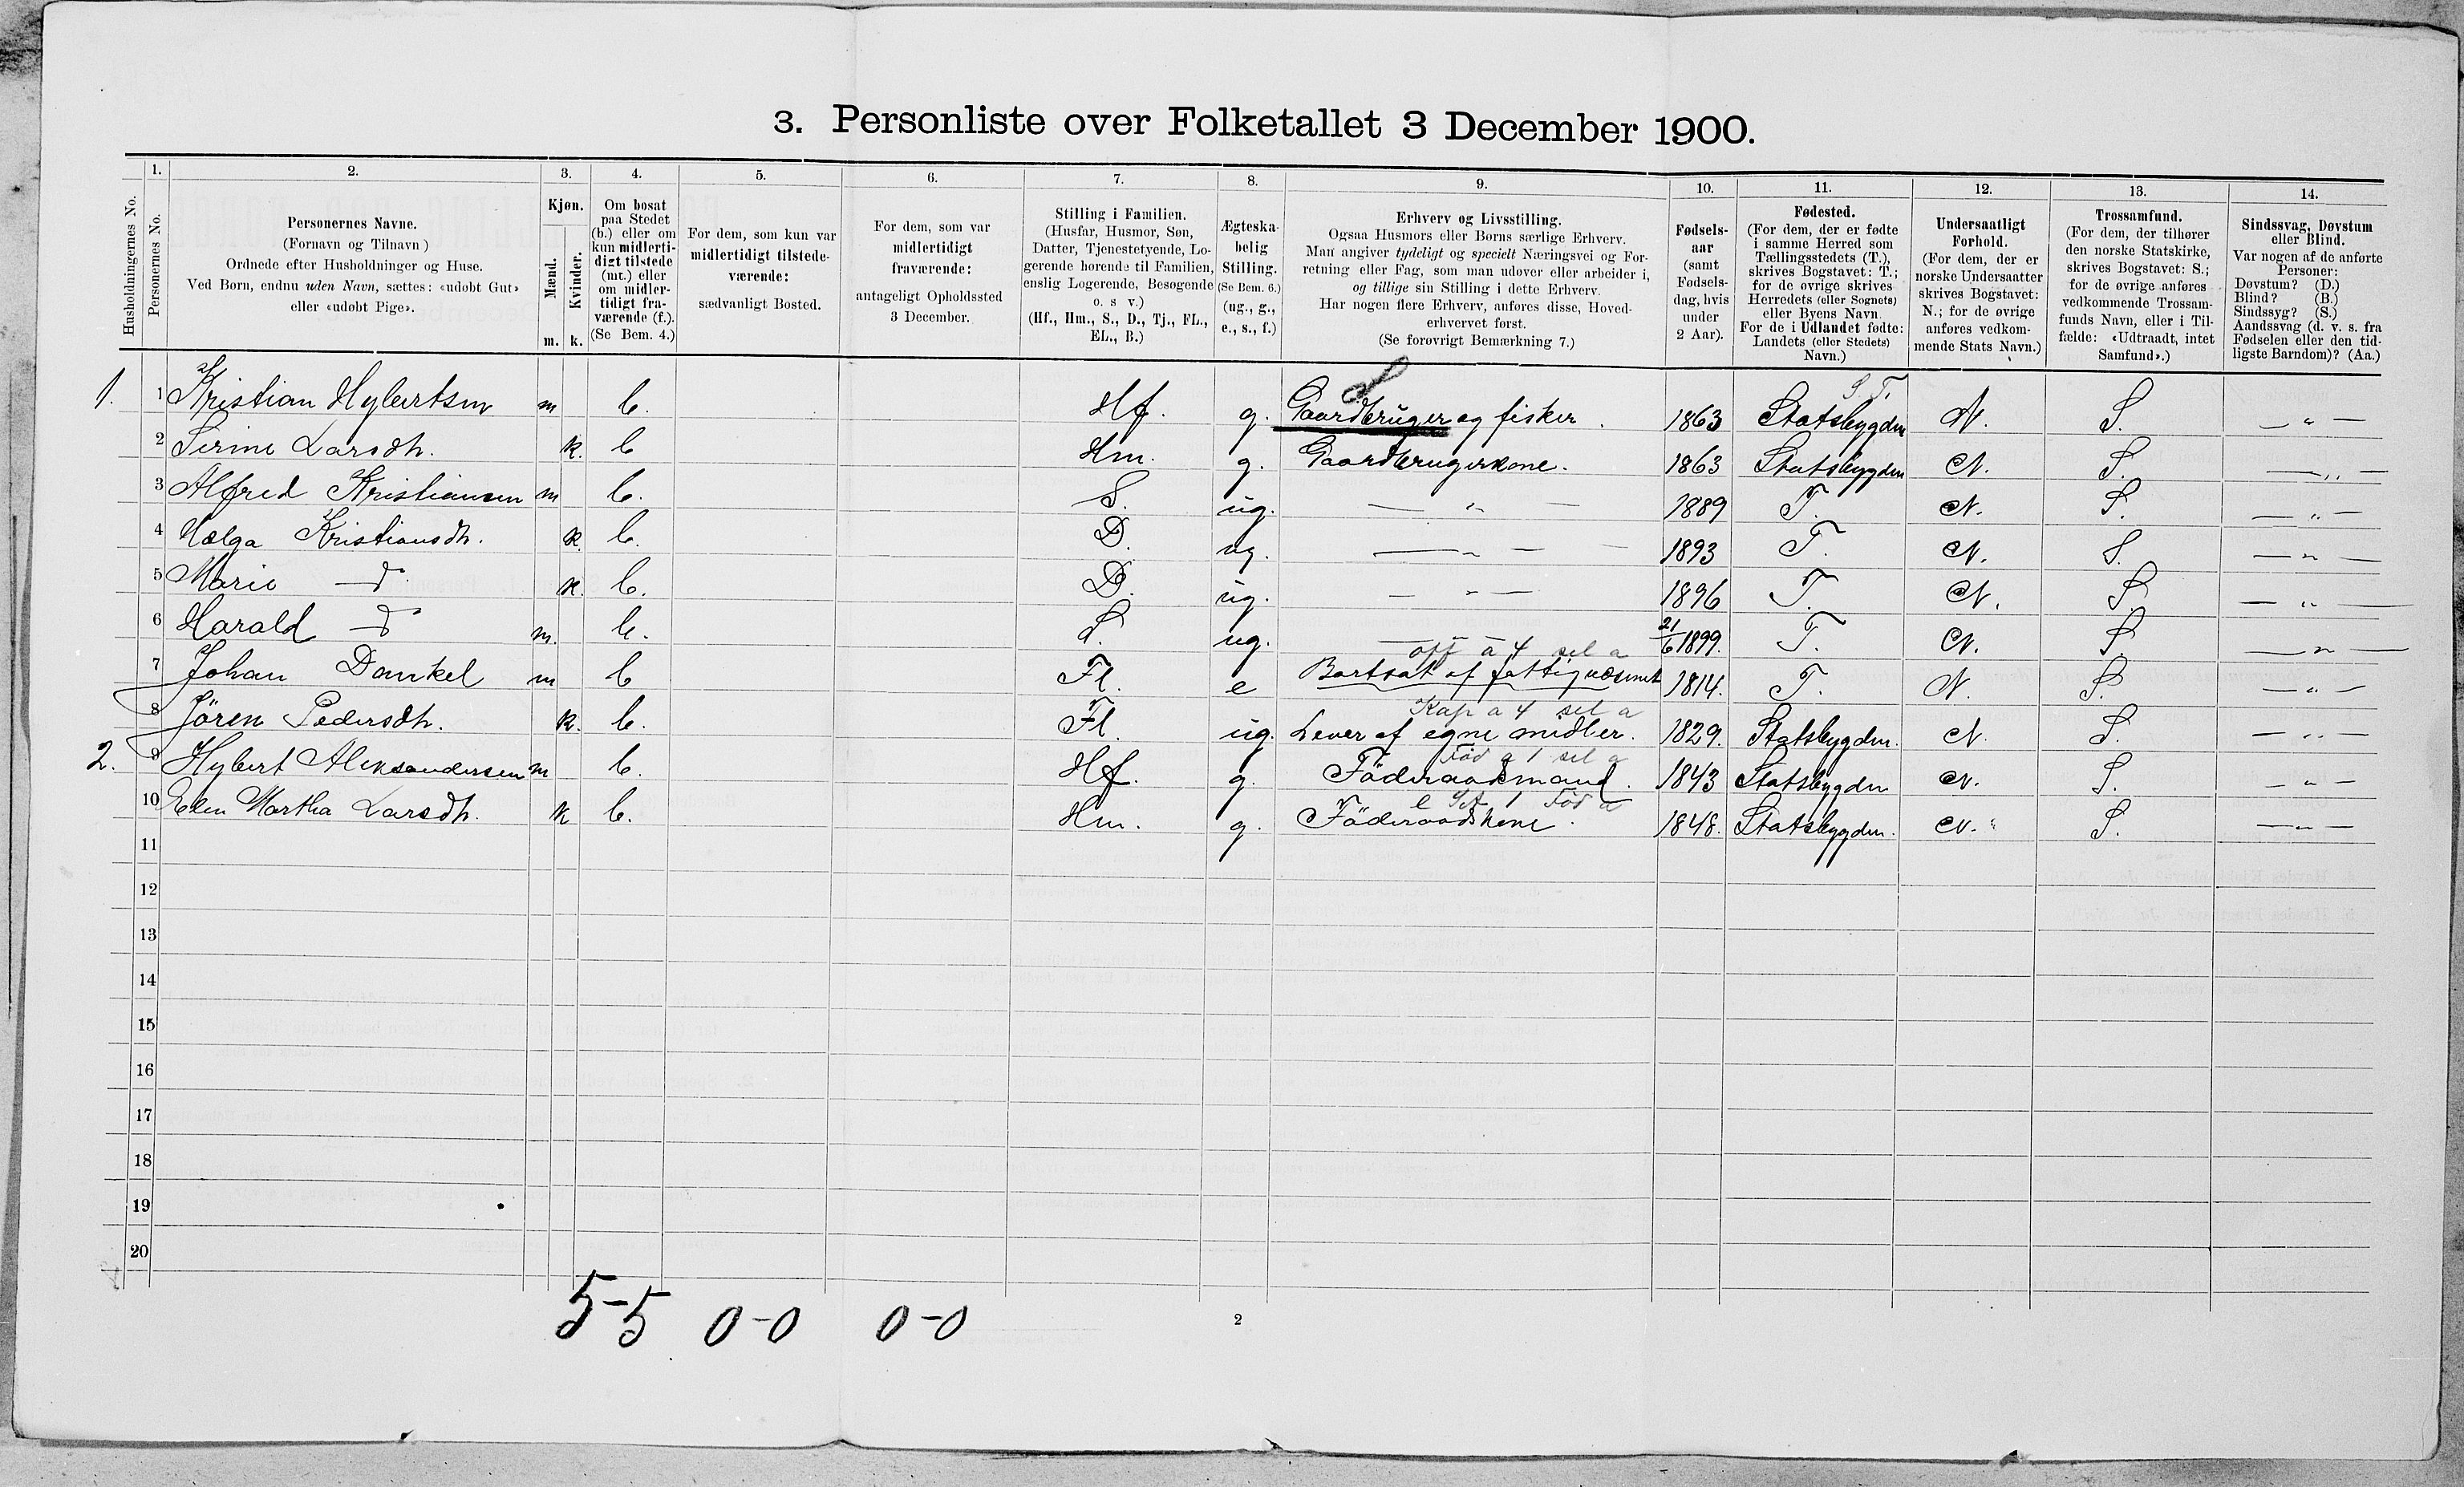 3. Personliste over Folketallet 3 December 1900.
Husholdningernes No.
1.
Personernes No.
2.
Personernes Navne.
(Fornavn og Tilnavn)
Ordnede efter Husholdninger og Huse.
Ved Børn, endnu uden Navn, sættes: «udøbt Gut»
eller «udøbt Pige».
3.
Kjøn.
Mænd.
Kvinder.
m. k.
4.
Om bosat
paa Stedet
(b.) eller om
kun midlerti-
digt tilstede
(mt.) eller
om midler-
tidigt fra-
værende (f.).
(Se Bem. 4.)
5.
For dem, som kun var
midlertidigt tilstede-
værende:
sædvanligt Bosted.
6.
For dem, som var
midlertidigt
fraværende:
antageligt Opholdssted
3 December.
7.
Stilling i Familien.
(Husfar, Husmor, Søn,
Datter, Tjenestetyende, Lo-
gerende hørende til Familien,
enslig Logerende, Besøgende
o. s v.)
(Hf., Hm., S., D., Tj., FL.,
EL., B.)
8.
Ægteska-
belig
Stilling.
(Se Bem. 6.)
(ug., g.,
e., s., f.)
9.
Erhverv og Livsstilling.
Ogsaa Husmors eller Børns særlige Erhverv.
Man angiver tydeligt og specielt Næringsvei og For-
retning eller Fag, som man udøver eller arbeider i,
og tillige sin Stilling i dette Erhverv.
Har nogen flere Erhverv, anføres disse, Hoved-
erhvervet først.
(Se forøvrigt Bemærkning 7.)
10.
Fødsels-
aar
(samt
Fødsels-
dag, hvis
under
2 Aar).
11.
Fødested.
(For dem, der er fødte
i samme Herred som
Tællingsstedets (T.),
skrives Bogstavet: T.;
for de øvrige skrives
Herredets (eller Sognets)
eller Byens Navn.
For de i Udlandet fødte:
Landets (eller Stedets)
Navn.)
12.
Undersaatligt
Forhold.
(For dem, der er
norske Undersaatter
skrives Bogstavet:
N.; for de øvrige
anføres vedkom-
mende Stats Navn.)
13.
Trossamfund.
(For dem, der tilhører
den norske Statskirke,
skrives Bogstavet: S.;
for de øvrige anføres
vedkommende Trossam-
funds Navn, eller i Til-
fælde: «Udtraadt, intet
Samfund».)
14.
Sindssvag, Døvstum
eller Blind.
Var nogen af de anførte
Personer:
Døvstum? (D.)
Blind? (B.)
Sindssyg? (S.)
Aandssvag (d. v. s. fra
Fødselen eller den tid-
ligste Barndom)? (Aa.)
S. T.
1. 1 Kristian Hybertsen m b. Hf. g. Gaardbruger og fisker. 1863 Statsbygden N. S. — " —
2 Serine Larsdh. k. b Hm. g. Gaardbrugerkone. 1863 Statsbygden N. S. — " —
3 Alfred Kristiansen m b. S. ug. — " — 1889 T. N. S. — " —
4 Hælga Kristiansdh. k. b. D. ug. — " — 1893 T. N. S. — " —
5 Marie —d— k. b. D. ug. — " — 1896 T. N. S. — " —
6 Harald —d— m. b. S. ug. — " — 21/6 1899. T. N. S. — " —
off a 4 sel a
7 Johan Dankel m b Fl. e Bortsat af fattigvæsenet 1814. T. N. S. — " —
Kap a 4 sel a
8 Jören Pedersdh. k. b. Fl. ug. Lever af egne midler. 1829. Statsbygden. N. S. — " —
Föd a 1 sel a
2. 9 Hybert Aleksandersen m b. Hf. g. Föderaadsmand. 1843 Statsbygden N. S. — " —
1 Föd a
10 Elen Martha Larsdh. k b. Hm. g. Föderaadskone. 1848. Statsbygden. N. S. — " —
11
12
13
14
15
16
17
18
19
20
5-5 0-0 0-0
2